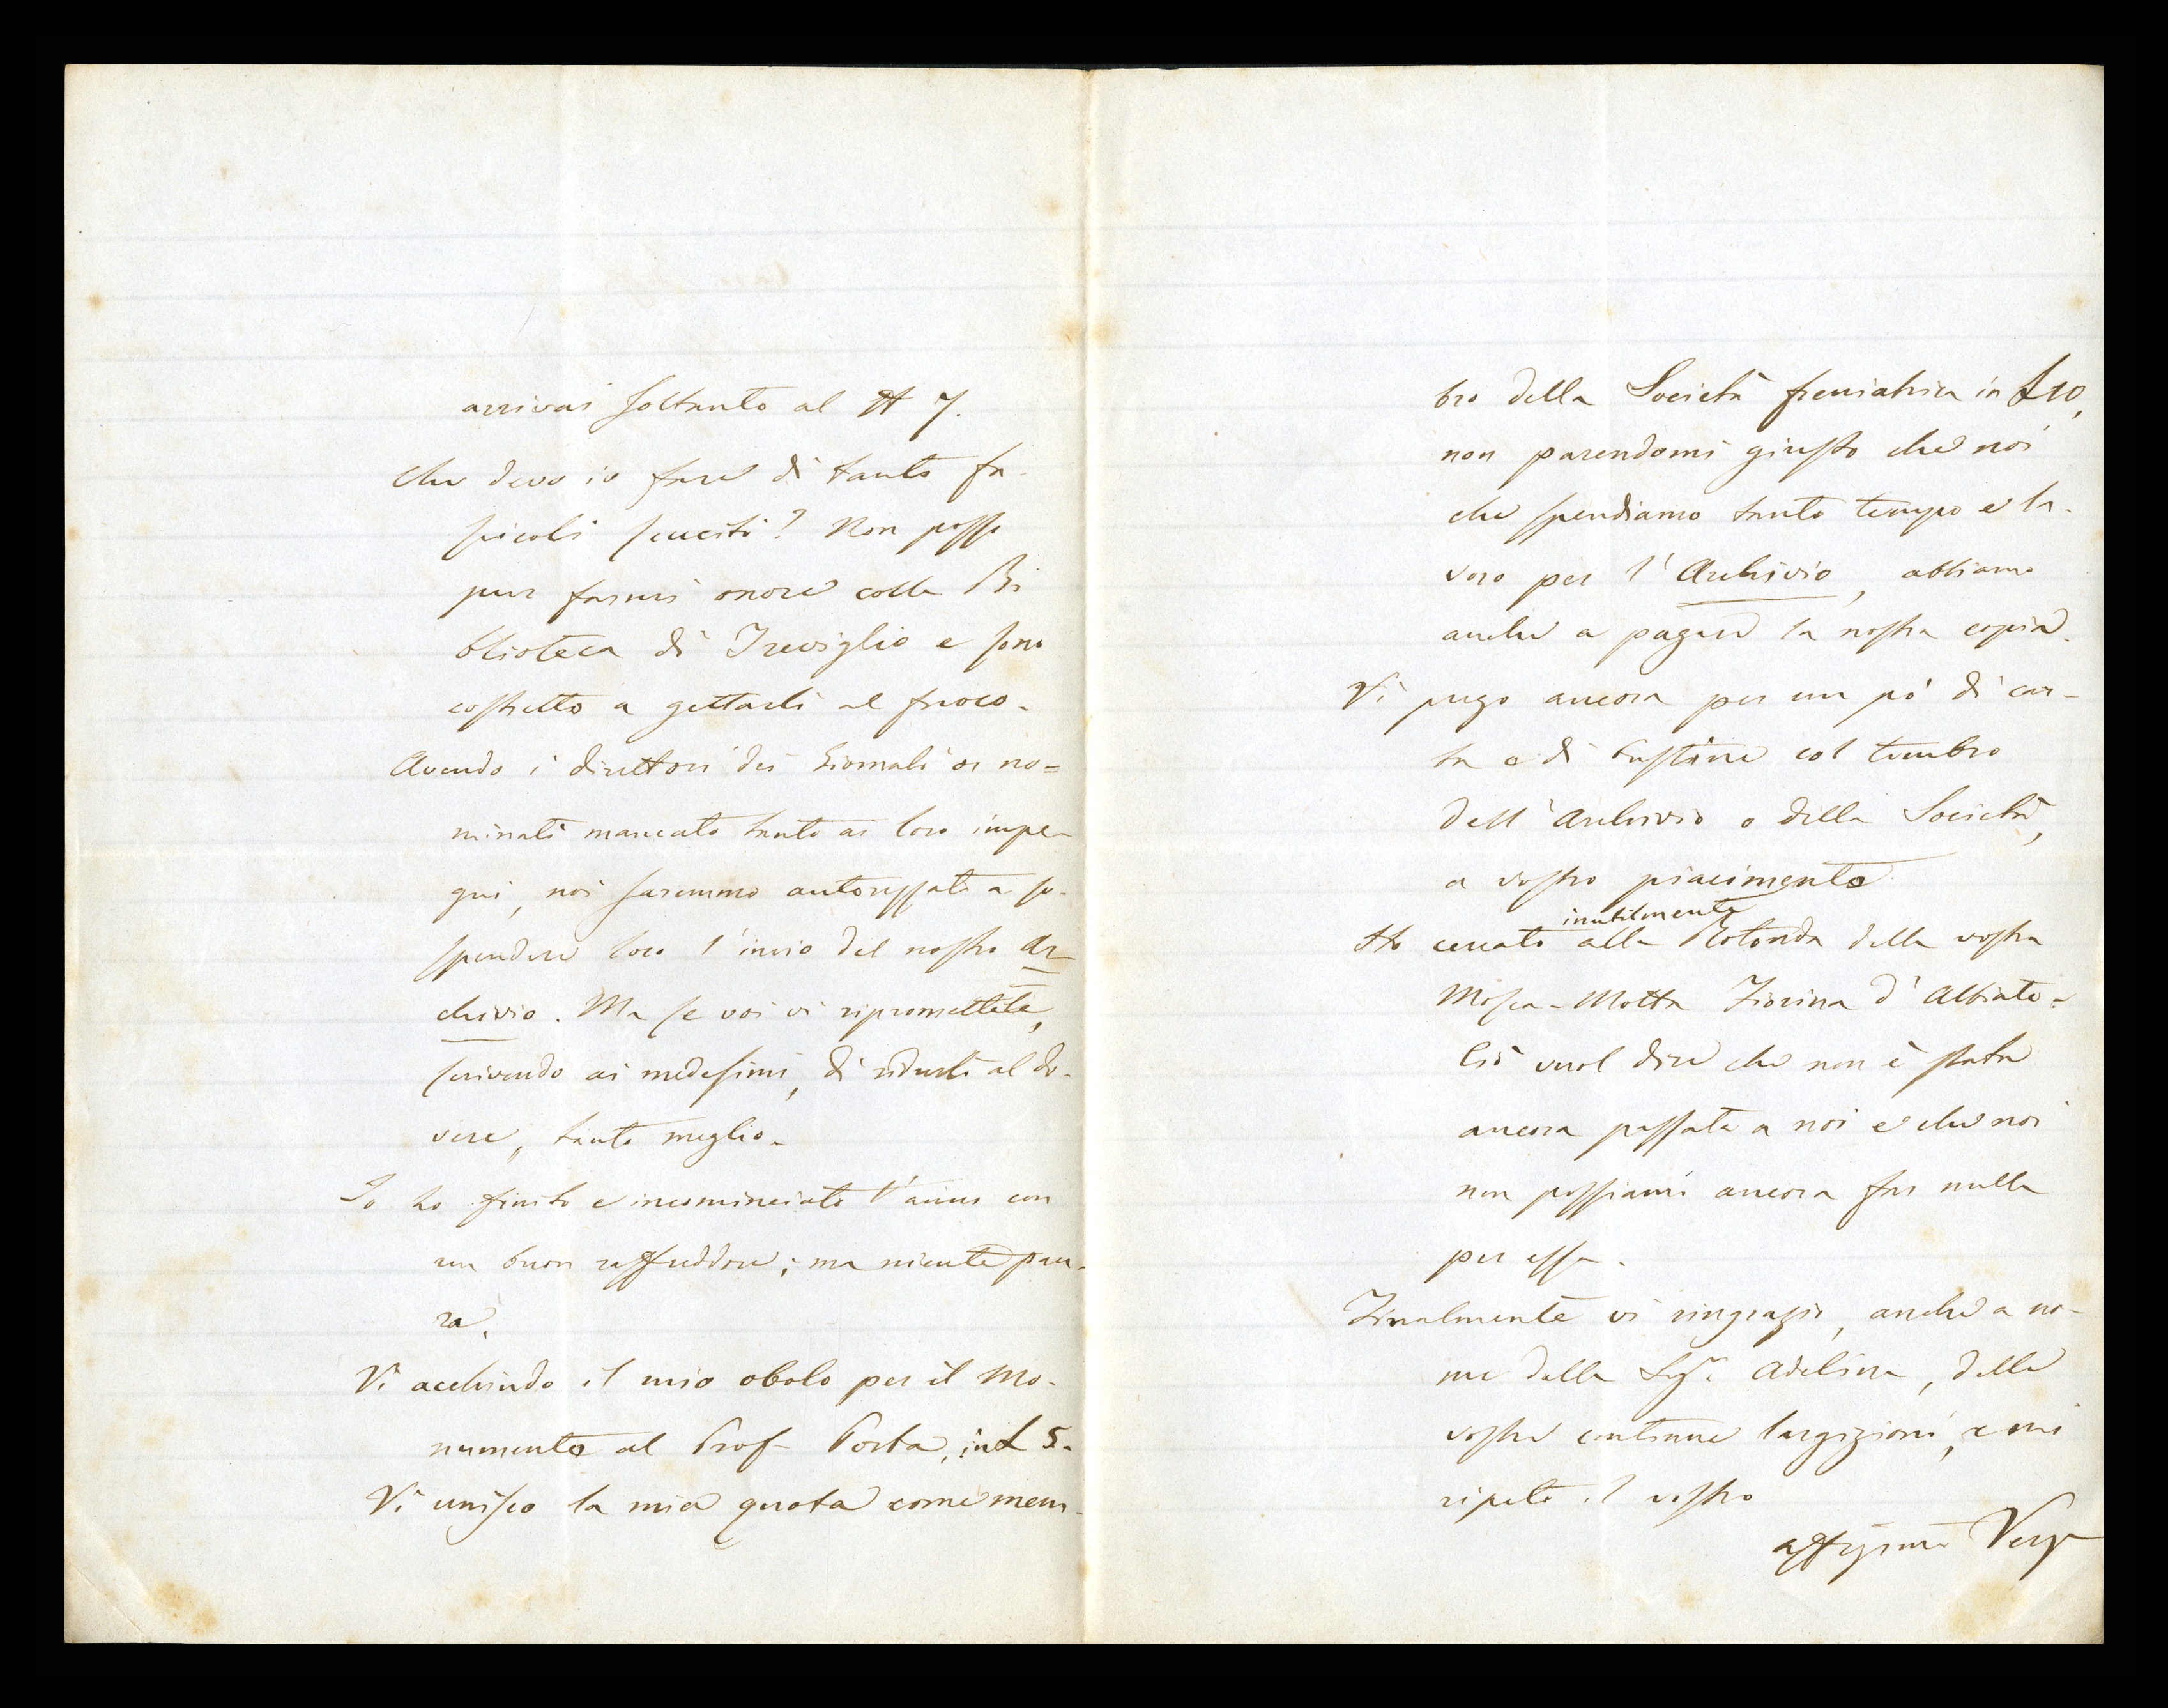 arrivai soltanto al N 7.
Che devo io fare di tanti fa-
scicoli scuciti? Non posso
pur farmi onore colla Bi
blioteca di Treviglio e sono
costretto a gettarli al fuoco.
Avendo i direttori dei Giornali or no=
minati mancato tanto ai loro impe-
gni, noi saremmo autorizzati a so-
spendere loro l'invio del nostro Ar-
chivio. Ma se voi vi ripromettete,
scrivendo ai medesimi, di ridurli al do-
vere, tanto meglio.
Io ho finito e incominciato l'anno con
un buon raffreddore; ma niente pau-
ra.
Vi acchiudo il mio obolo per il Mo-
numento al Prof. Porta, in L 5.
Vi unisco la mia quota come mem-
bro della Società freniatrica in L 10,
non parendomi giusto che noi
che spendiamo tanto tempo e la-
voro per l'Archivio, abbiamo
anche a pagare la nostra copia.
Vi prego ancora per un pó di car-
ta e di bustine col timbro
dell'Archivio o della Società,
a vostro piacimento.
inutilmente
Ho cercato alla Rotonda della vostra
Mosca-Motta Fiorina d'Albiate.
Ciò vuol dire che non è stata
ancora passata a noi e che noi
non possiamo ancora far nulla
per essa.
Finalmente vi ringrazio, anche a no-
me della Sig.ra Adelina, delle
vostre continue largizioni, e mi
ripeto il vostro
affezmo Verga